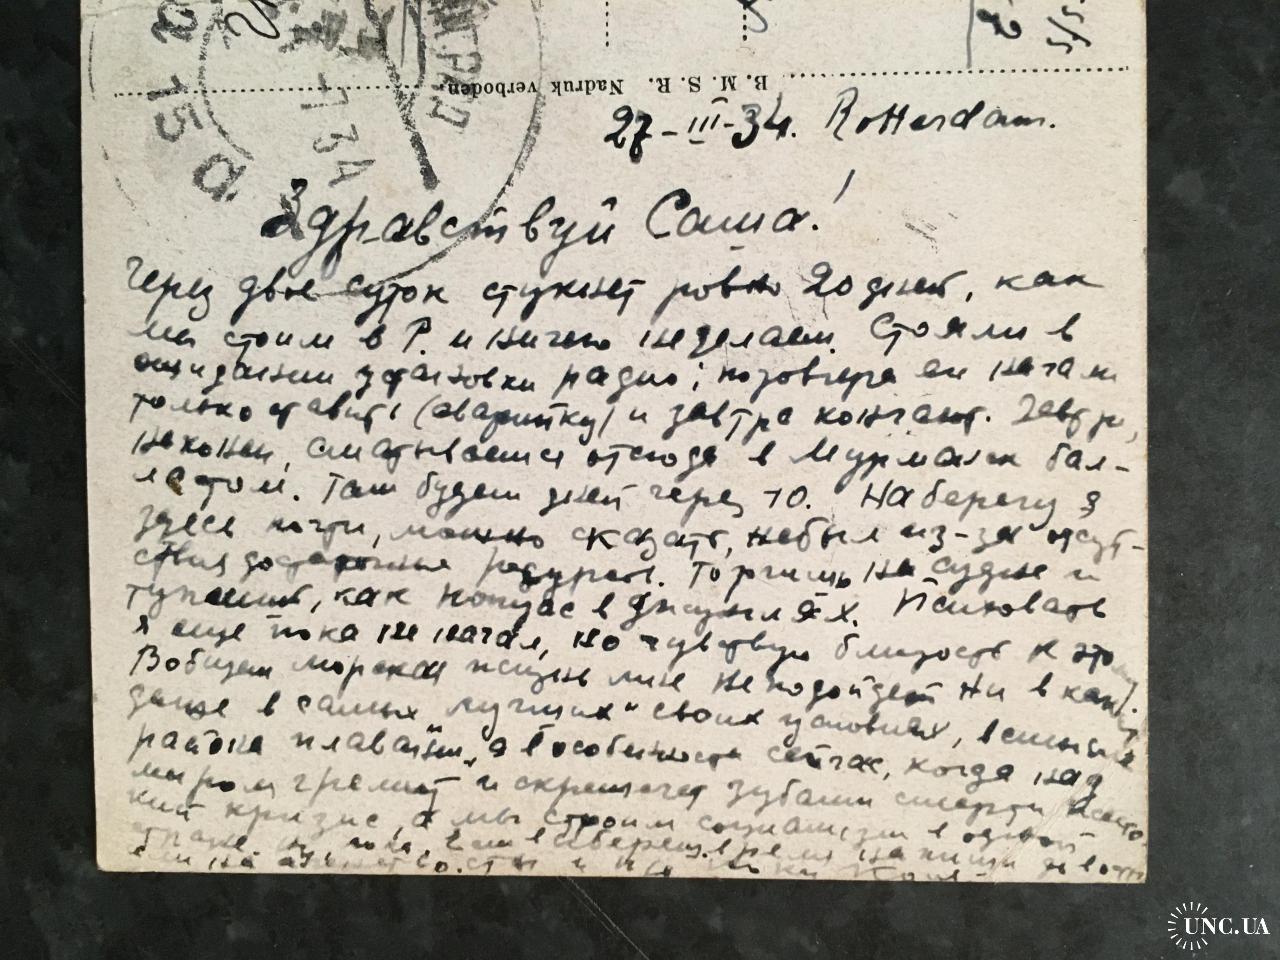 B. M. S. R. Nadruk verboden.
27-III-34. Rotterdam.
Здравствуй Саша!
Через двое суток стукнет ровно 20 дней, как
мы стоим в Р. и ничего не делаем. Стояли в
ожидании установки радио; позовчера ея начали
только ставить (аварийку) и завтра кончают. Завтра,
наконец, сматываемся отсюда в Мурманск бал-
ластом. Там будем дней через 10. На берегу я
здесь почти, можно сказать, не был из-за отсут-
ствия достаточных ресурсов. Торчишь на судне и
тупеешь, как попугас в джунглях. Психовать
я еще пока не начал, но чувствую близость к этому.
Вобщем морская жизнь мне не подойдет ни в каких,
даже в самых "лучших" своих условиях, в смысле
района плавания, а в особенности сейчас, когда над
миром гремит и скрежечет зубами смерти
кий кризис, а мы строим социализм в одной
стране. Ну, пока, время напиши
UNC.UA